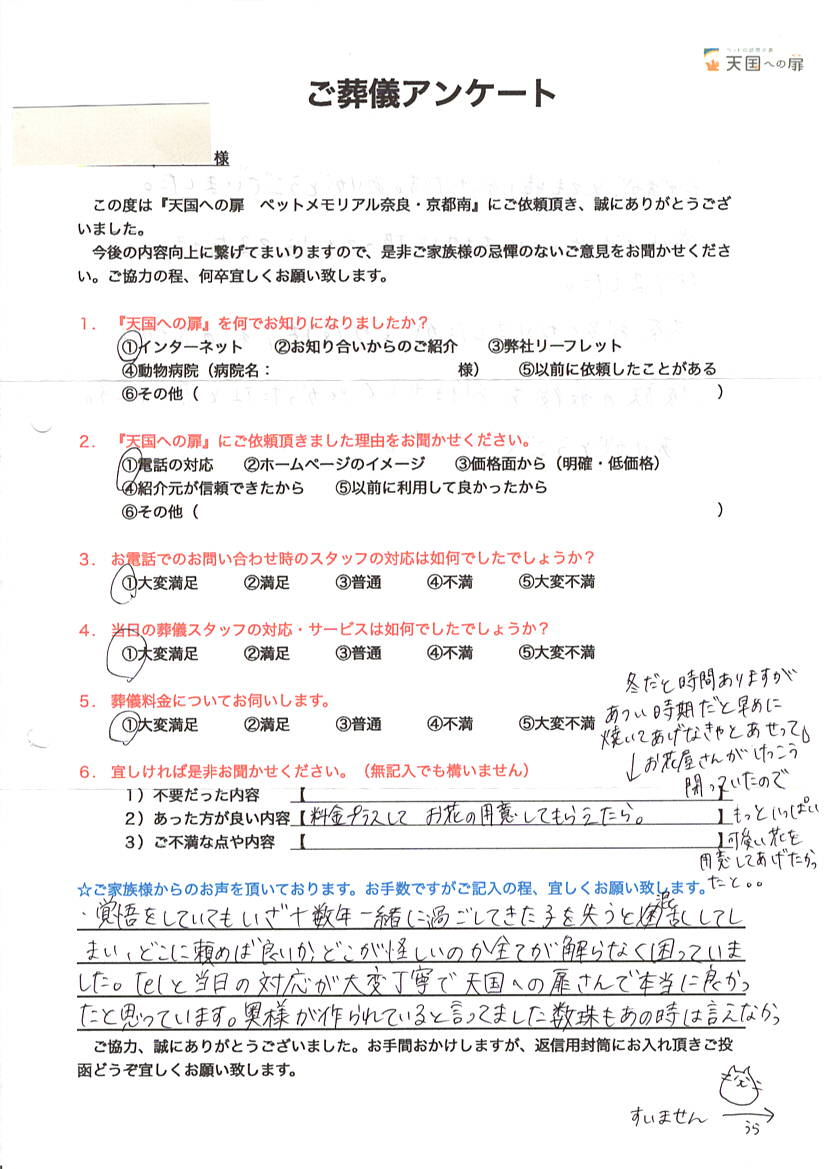 ペットの訪問火葬
天国への扉
ご葬儀アンケート
様
この度は『天国への扉　ペットメモリアル奈良・京都南』にご依頼頂き、誠にありがとうござ
いました。
今後の内容向上に繋げてまいりますので、是非ご家族様の忌憚のないご意見をお聞かせくださ
い。ご協力の程、何卒宜しくお願い致します。
１．『天国への扉』を何でお知りになりましたか？
①インターネット　②お知り合いからのご紹介　③弊社リーフレット
④動物病院（病院名：　様）　⑤以前に依頼したことがある
⑥その他（　）
２．『天国への扉』にご依頼頂きました理由をお聞かせください。
①電話の対応　②ホームページのイメージ　③価格面から（明確・低価格）
④紹介元が信頼できたから　⑤以前に利用して良かったから
⑥その他（　）
３．お電話でのお問い合わせ時のスタッフの対応は如何でしたでしょうか？
①大変満足　②満足　③普通　④不満　⑤大変不満
４．当日の葬儀スタッフの対応・サービスは如何でしたでしょうか？
①大変満足　②満足　③普通　④不満　⑤大変不満
５．葬儀料金についてお伺いします。
①大変満足　②満足　③普通　④不満　⑤大変不満
６．宜しければ是非お聞かせください。（無記入でも構いません）
１）不要だった内容　【　】
２）あった方が良い内容【料金プラスして　お花の用意してもらえたら。】
３）ご不満な点や内容　【　】
冬だと時間ありますが
あつい時期だと早めに
焼いてあげなきゃとあせって
↓お花屋さんがけっこう
閉っていたので
もっといっぱい
可愛い花を
用意してあげたかっ
たと。。
☆ご家族様からのお声を頂いております。お手数ですがご記入の程、宜しくお願い致します。
・覚悟をしていてもいざ十数年一緒に過ごしてきた子を失うと混乱してし
まい、どこに頼めば良いか、どこが怪しいのか全てが解らなく困っていま
した。telと当日の対応が大変丁寧で天国への扉さんで本当に良かっ
たと思っています。奥様が作られていると言ってました数珠もあの時は言えなかっ
ご協力、誠にありがとうございました。お手間おかけしますが、返信用封筒にお入れ頂きご投
函どうぞ宜しくお願い致します。
すいません　→
うら